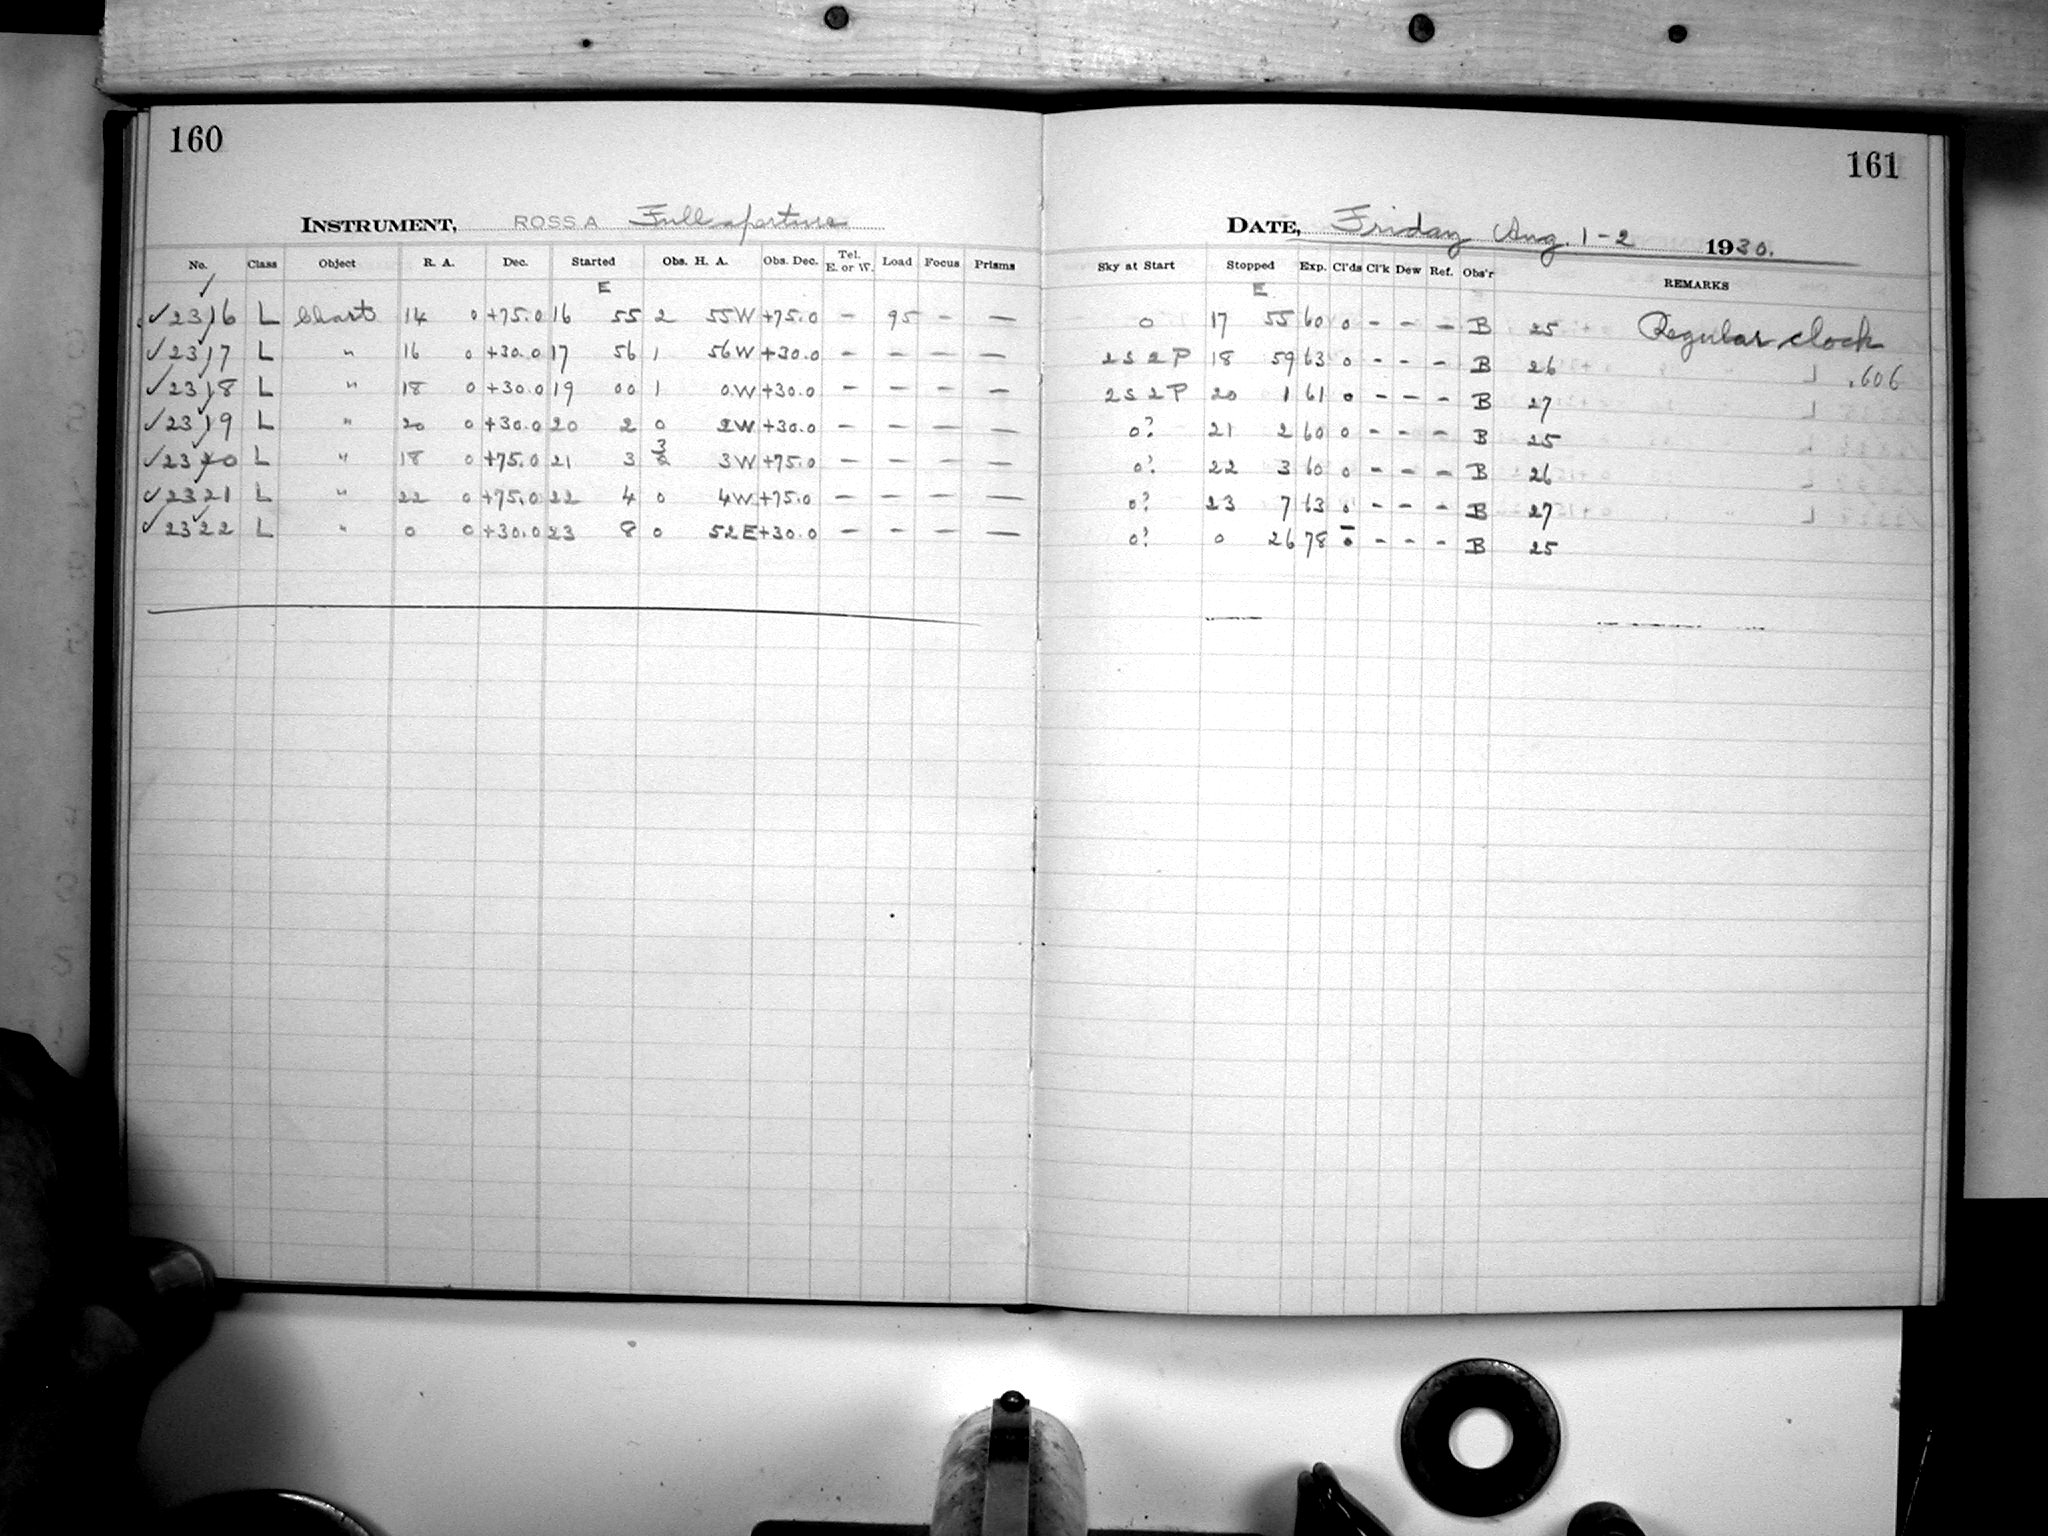 160
INSTRUMENT, ROSS A Full aperture
No. Class Object R. A. Dec. Started Obs. H. A. Obs. Dec. Tel. E. or W. Load Focus Prisms
E
✓2316 L Charts 14 0 +75.0 16 55 2 55W +75.0 - 95 - -
✓2317 L " 16 0 +30.0 17 56 1 56W +30.0 - - - -
✓2318 L " 18 0 +30.0 19 00 1 0W +30.0 - - - -
✓2319 L " 20 0 +30.0 20 2 0 2W +30.0 - - - -
✓2320 L " 18 0 +75.0 21 3 3 3W +75.0 - - - -
✓2321 L " 22 0 +75.0 22 4 0 4W +75.0 - - - -
✓2322 L " 0 0 +30.0 23 8 0 52E +30.0 - - - -
161
DATE, Friday Aug. 1-2 1930.
Sky at Start Stopped Exp. Cl'ds Cl'k Dew Ref. Obs'r REMARKS
E
0 17 55 60 0 - - - B 25 Regular clock
2S 2P 18 59 63 0 - - - B 26 .606
2S 2P 20 1 61 0 - - - B 27
0? 21 2 60 0 - - - B 25
0? 22 3 60 0 - - - B 26
0? 23 7 63 0 - - - B 27
0? 0 26 78 0 - - - B 25